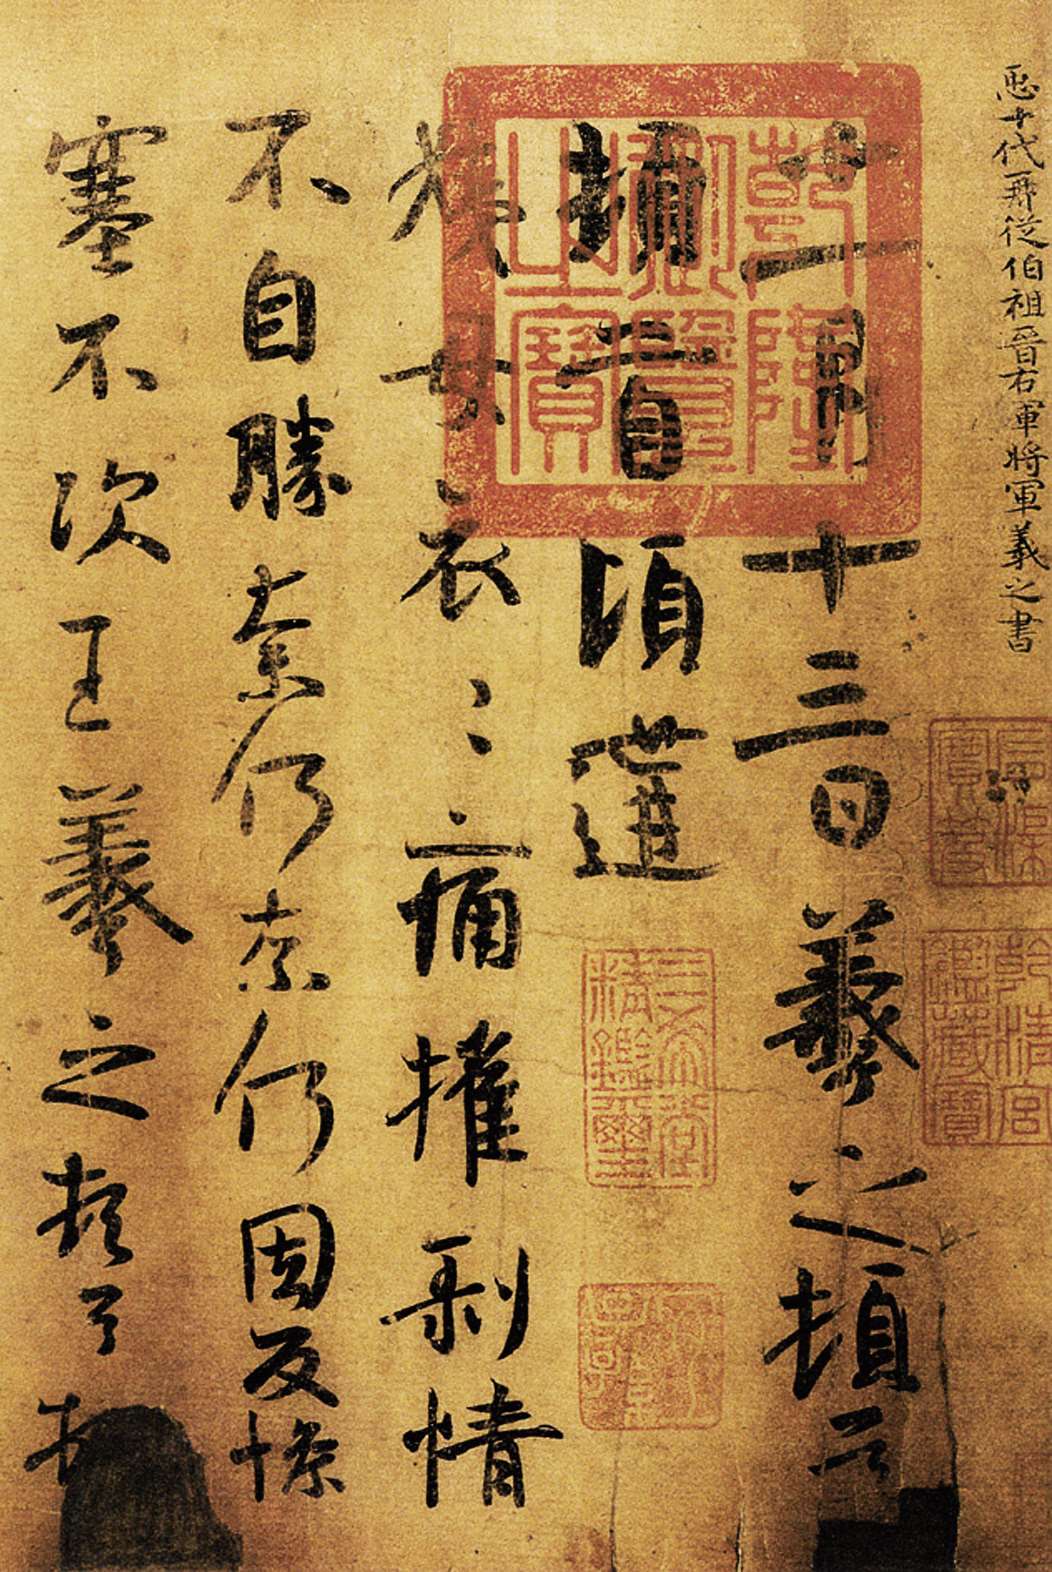 臣十代再從伯祖晉右軍將軍羲之書
十一月十三日羲之頓首
頓首頃遘
姨母哀〻痛摧剝情
不自勝奈何奈何因反慘
塞不次王羲之頓首頓
乾隆御覽之寶
石渠寶笈
乾清宮鑑藏寶
三希堂精鑑璽